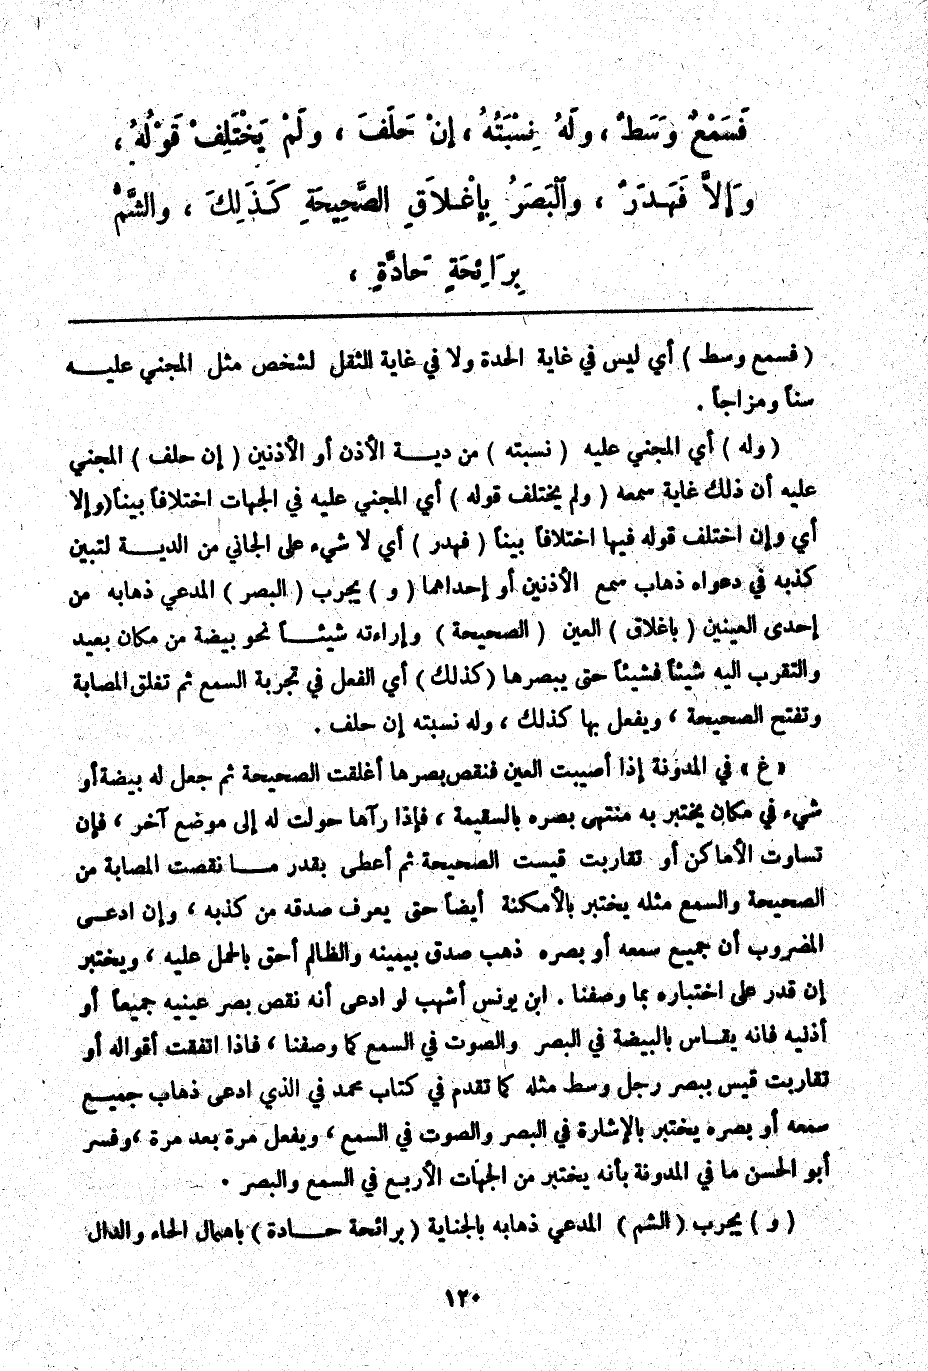 فَسَمْعٌ وَسَطٌ ، ولَهُ نِسْبَتُهُ ، إنْ حَلَفَ ، ولَمْ يَخْتَلِفْ قَوْلُهُ ،
وَإلاَّ فَهَدَرٌ ، والْبَصَرُ بِإغْلاَقِ الصَّحِيحَةِ كَذَلِكَ ، والشَّمُّ
بِرَائِحَةٍ حَادَّةٍ ،
( فسمع وسط ) أي ليس في غاية الحدة ولا في غاية الثقل لشخص مثل المجني عليــه
سناً ومزاجاً .
( وله ) أي المجني عليه ( نسبته ) من ديــة الأذن أو الأذنين ( إن حلف ) المجني
عليه أن ذلك غاية سمعه ( ولم يختلف قوله ) أي المجني عليه في الجهات اختلافاً بيناً(وإلا
أي وإن اختلف قوله فيها اختلافاً بيناً ( فهدر ) أي لا شيء على الجاني من الديــة لتبين
كذبه في دعواه ذهاب سمع الأذنين أو إحداهما ( و ) يجرب ( البصر ) المدعي ذهابه من
إحدى العينين ( باغلاق ) العين ( الصحيحة ) وإراءته شيئــاً نحو بيضة من مكان بعيد
والتقرب اليه شيئاً فشيئاً حتى يبصرها (كذلك ) أي الفعل في تجربة السمع ثم تغلق المصابة
وتفتح الصحيحة ، ويفعل بها كذلك ، وله نسبته إن حلف .
« غ » في المدونة إذا أصيبت العين فنقص بصرها أغلقت الصحيحة ثم جعل له بيضة أو
شيء في مكان يختبر به منتهى بصره بالسقيمة ، فإذا رآها حولت له إلى موضع آخر ، فإن
تساوت الأماكن أو تقاربت قيست الصحيحة ثم أعطى بقدر مــا نقصت المصابة من
الصحيحة والسمع مثله يختبر بالأمكنة أيضاً حتى يعرف صدقه من كذبه ، وإن ادعــى
المضروب أن جميع سمعه أو بصره ذهب صدق بيمينه والظالم أحق بالحمل عليه ، ويختبر
إن قدر على اختباره بما وصفنا . ابن يونس أشهب لو ادعى أنه نقص بصر عينيه جميعاً أو
أذنيه فانه يقــاس بالبيضة في البصر والصوت في السمع كما وصفنا ، فاذا اتفقت أقواله أو
تقاربت قيس ببصر رجل وسط مثله كما تقدم في كتاب محمد في الذي ادعى ذهاب جميــع
سمعه أو بصره يختبر بالإشارة في البصر والصوت في السمع ، ويفعل مرة بعد مرة ،وفسر
أبو الحسن ما في المدونة بأنه يختبر من الجهات الأربع في السمع والبصر .
( و ) يجرب ( الشم ) المدعي ذهابه بالجناية ( برائحة حــادة ) باهمال الحاء والدال
١٢٠